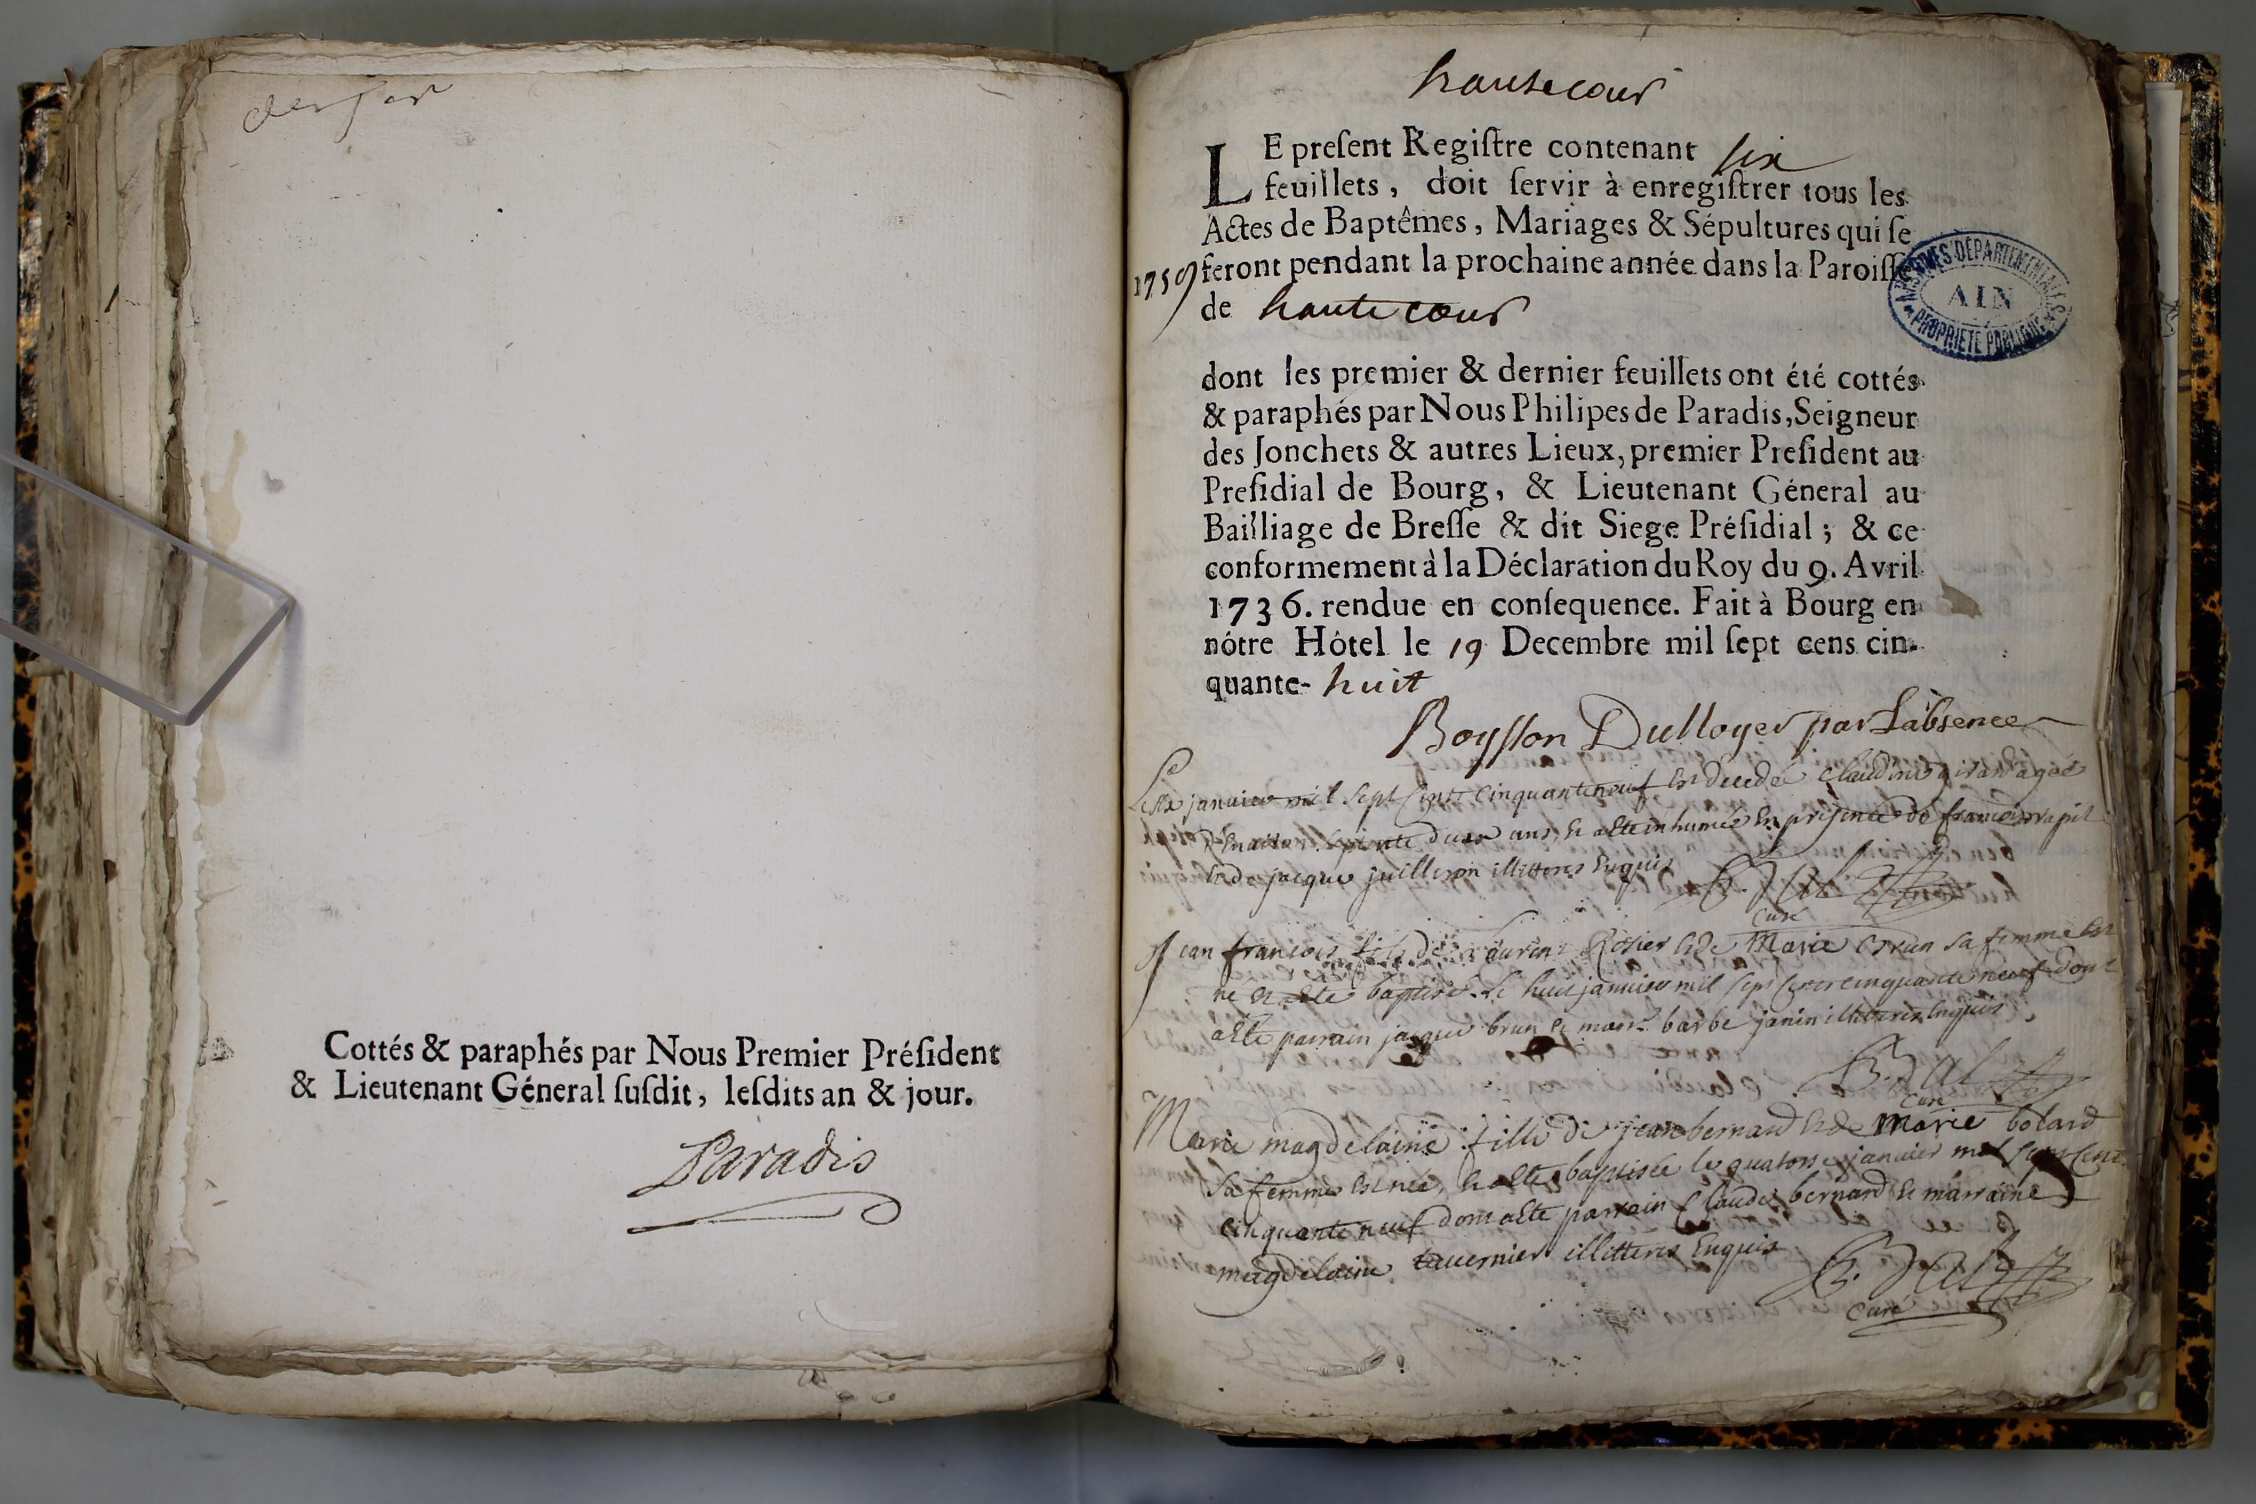 Cottés & paraphés par Nous Premier Préſident
& Lieutenant Géneral ſuſdit, leſdits an & jour.
Paradis
hautecour
LE preſent Regiſtre contenant ſix
feuillets, doit ſervir à enregiſtrer tous les
Actes de Baptêmes, Mariages & Sépultures qui ſe
1759 feront pendant la prochaine année dans la Paroiſſe
de hautecour
ARCHIVES DÉPARTEMENTALES
AIN
PROPRIÉTÉ PUBLIQUE
dont les premier & dernier feuillets ont été cottés
& paraphés par Nous Philipes de Paradis, Seigneur
des Jonchets & autres Lieux, premier Preſident au
Preſidial de Bourg, & Lieutenant Géneral au
Bailliage de Breſſe & dit Siege Préſidial ; & ce
conformement à la Déclaration du Roy du 9. Avril
1736. rendue en conſequence. Fait à Bourg en
nôtre Hôtel le 19 Decembre mil ſept cens cin-
quante- huit
Boysson Dulloyer par L'absence
Le six janvier mil sept cent cinquante neuf est decedé claudine agée
ans, et a été inhumée en presence de françois
et de jacque juilleron illitterés enquis
Curé
Jean françois fils de Laurent Rosier et de Marie brun sa femme est
né et a été baptisé le huit janvier mil sept cent cinquante neuf dont
a été parrain jacque brun et marr. barbe janin illitterés enquis
Curé
Marie magdelaine fille de jean bernard et de Marie bolard
sa femme est née, et a été baptisée le quatorse janvier mil sept cent
cinquante neuf dont a été parrain Claude bernard et marraine
magdelaine tavernier illitterés enquis
Curé